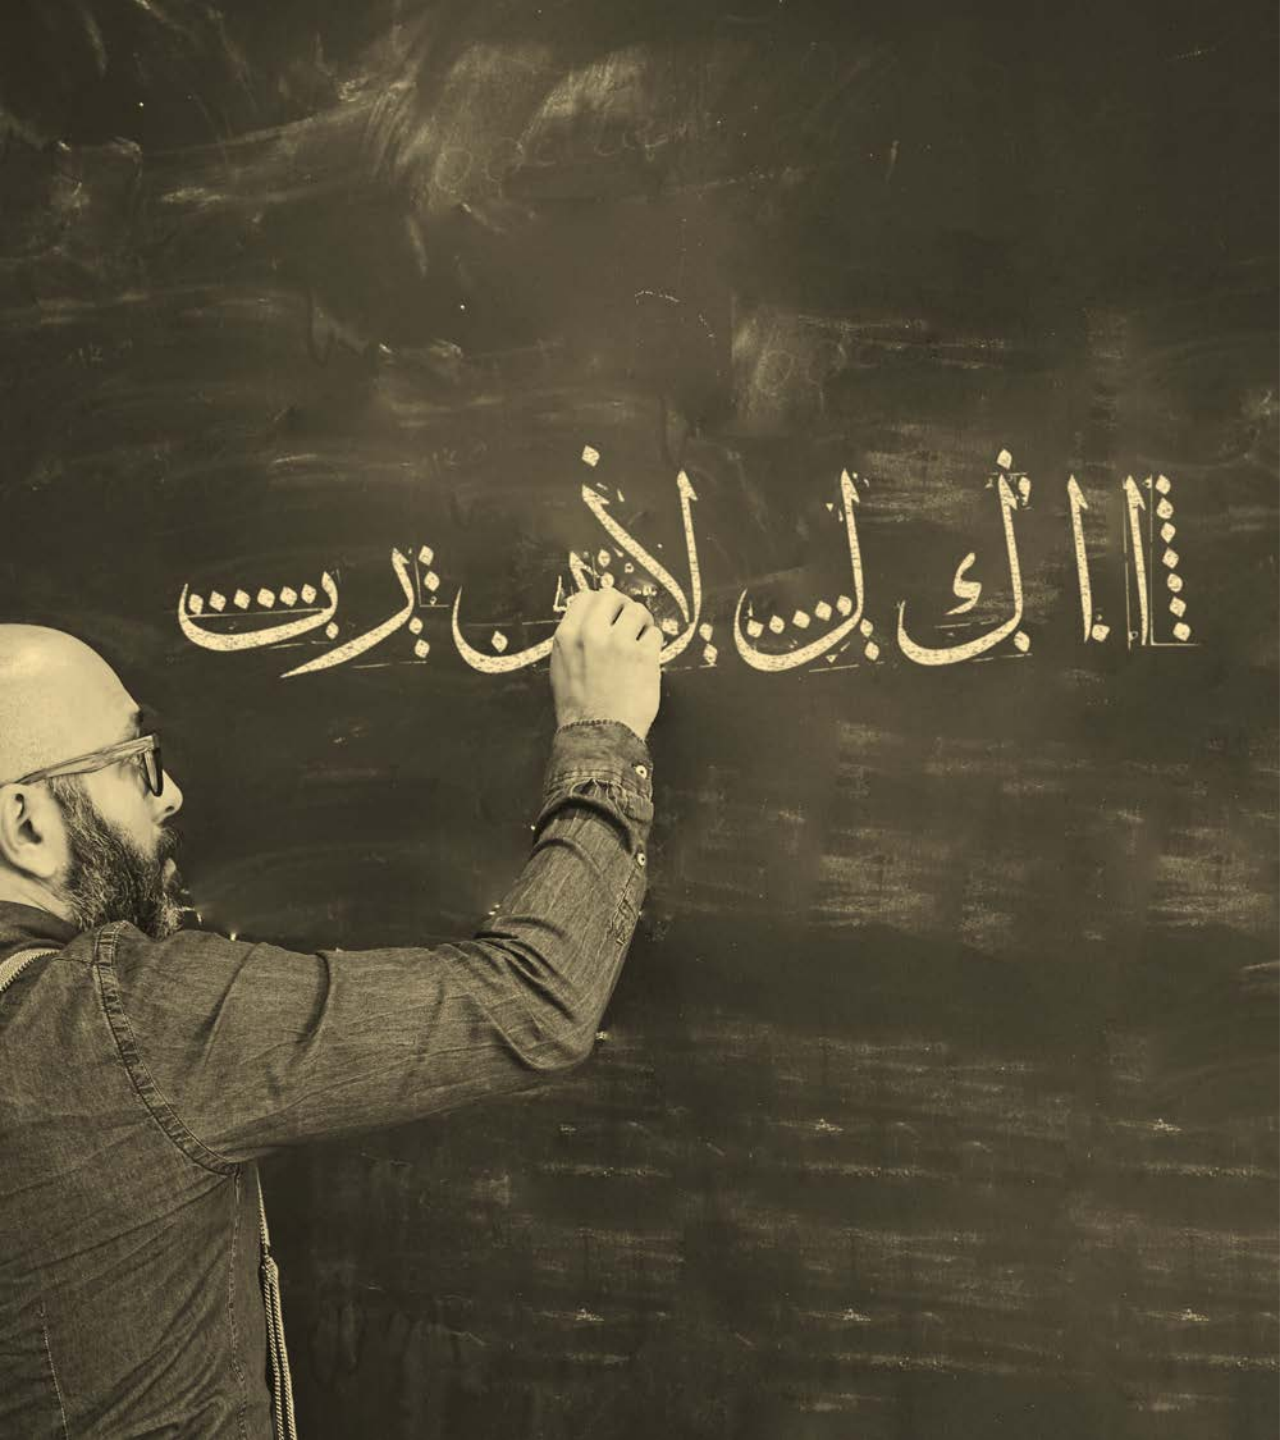 ا ا ك ل لا ن ر ب